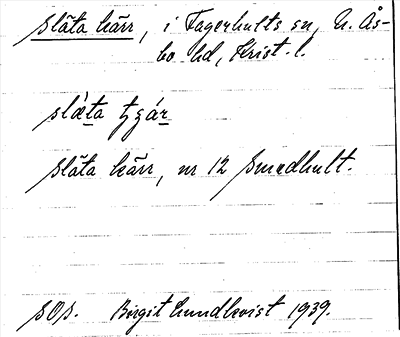 släta kärr, i Fagerhults sn, N. Ås-
bo hd, Krist. l.
slæ̀ta tʒár
släta kärr, nr 12 Smedhult.
sOs. Birgit Lundkvist 1939.